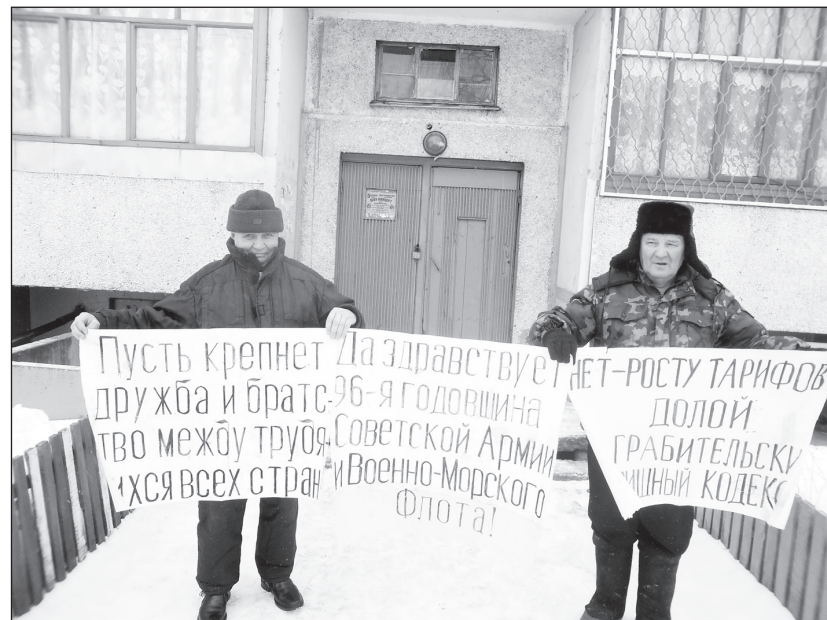 Пусть крепнет
дружба и братс-
тво между трудя-
ихся всех стран
Да здравствует
96-я годовщина
Советской Армии
и Военно-Морского
Флота!
НЕТ-РОСТУ ТАРИФОВ
ДОЛОЙ
ГРАБИТЕЛЬСКИ
ИЩНЫЙ КОДЕКС